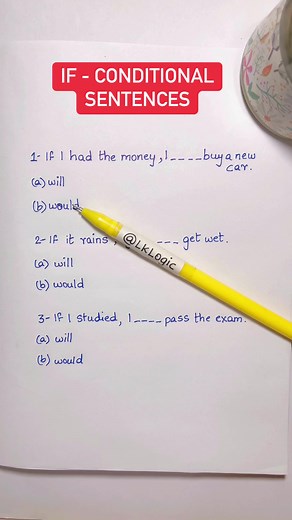 IF - CONDITIONAL
SENTENCES
1- If I had the money, I ---- buy a new
car.
(a) will
(b) would
@LkLogic
2- If it rains, --- get wet.
(a) will
(b) would
3- If I studied, I ---- pass the exam.
(a) will
(b) would